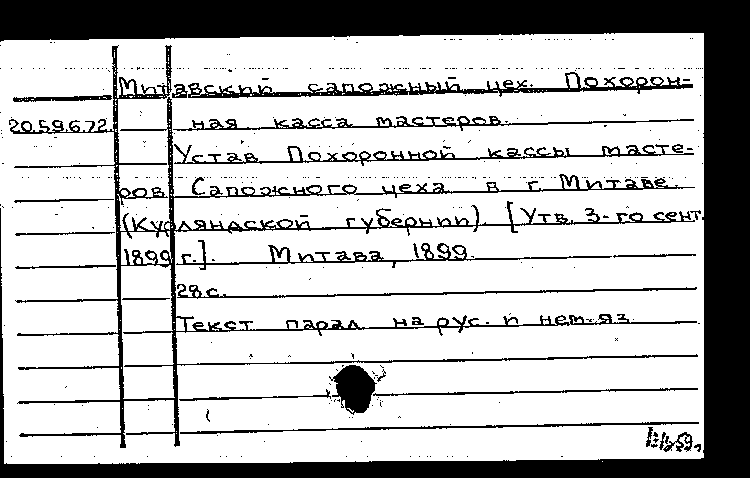 Митавский сапожный цех. Похорон-
20.59.6.72. ная касса мастеров.
Устав Похоронной кассы масте-
ров Сапожного цеха в г. Митаве.
(Курляндской губернии). [Утв. 3-го сент.
1899 г.]. Митава, 1899.
28 с.
Текст парал. на рус. и нем. яз.